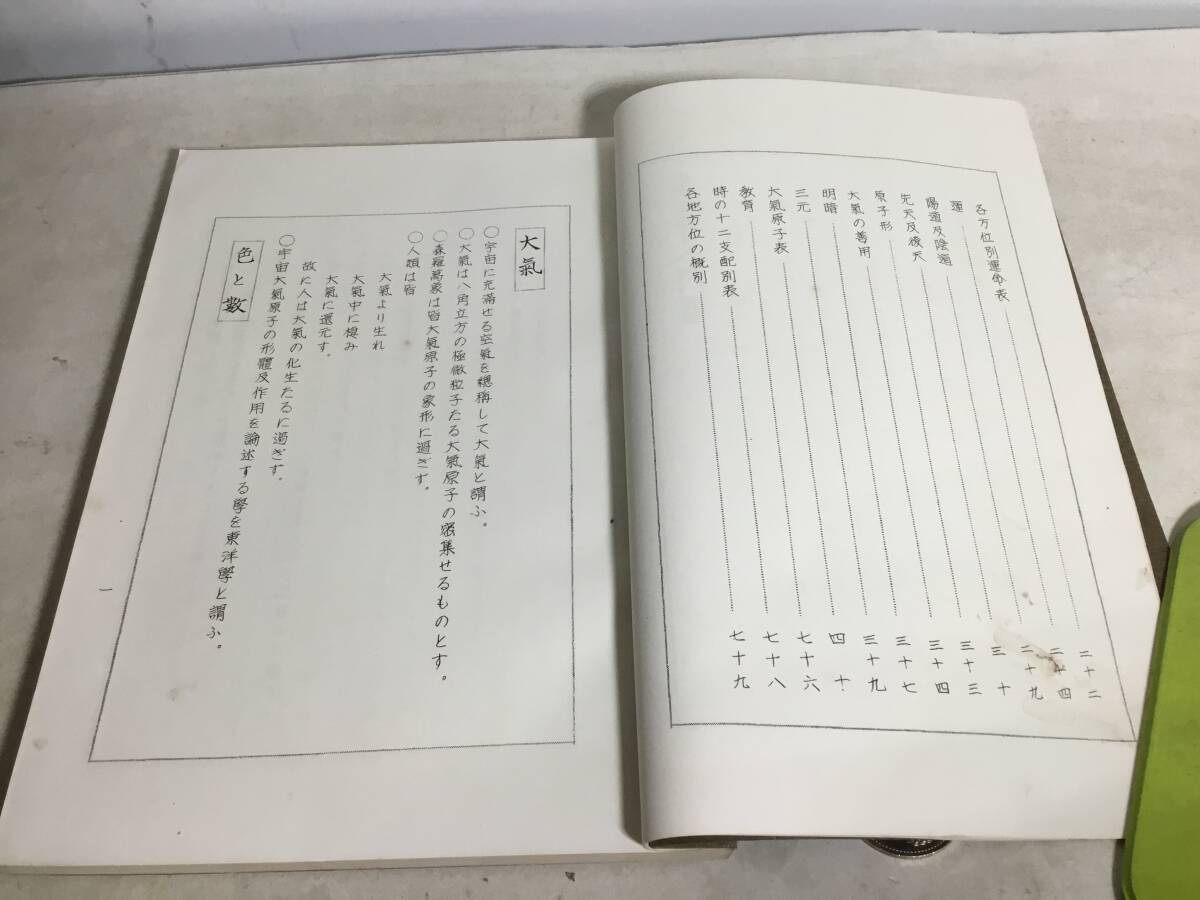 各方位別運命表 二十二
運 二十四
陽遁及陰遁 二十九
先天及後天 三十
原子形 三十三
大氣の善用 三十四
明暗 三十七
三元 三十九
大氣原子表 四十
教育 七十六
時の十二支配別表 七十八
各地方位の概別 七十九
大氣
○宇宙に充滿せる空氣を總稱して大氣と謂ふ。
○大氣は八角立方の極微粒子たる大氣原子の密集せるものとす。
○森羅萬象は皆大氣原子の象形に過ぎす。
○人類は皆
大氣より生れ
大氣中に棲み
大氣に還元す。
故に人は大氣の化生たるに過ぎす。
○宇宙大氣原子の形體及作用を論述する學を東洋學と謂ふ。
色と数
一